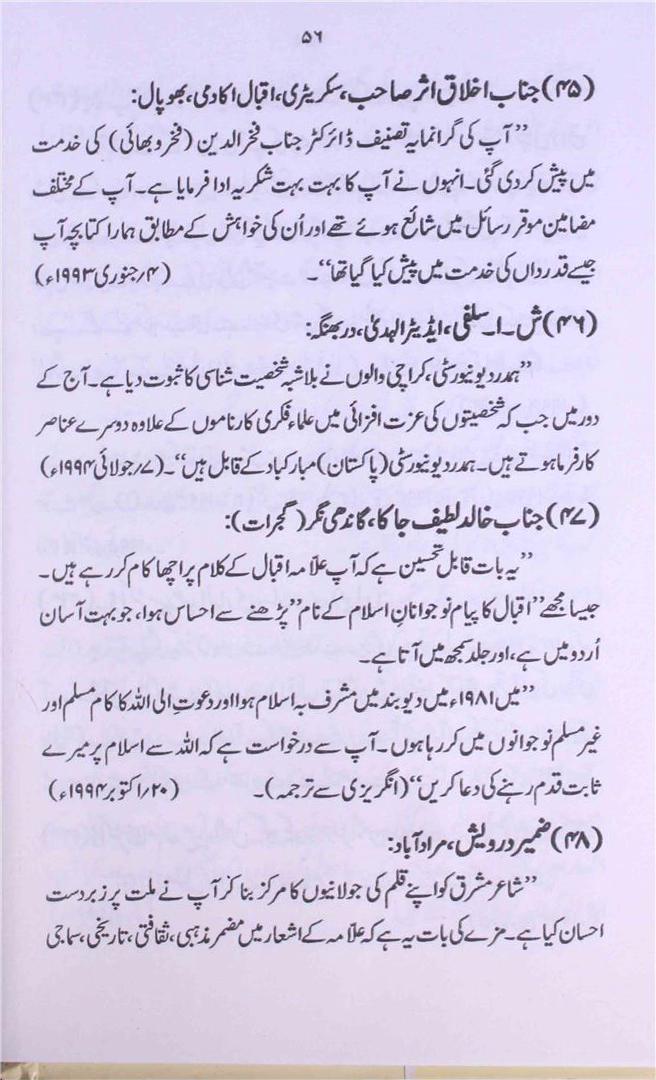 ۵۶
(۴۵) جناب اخلاق اثر صاحب، سکریٹری، اقبال اکادمی، بھوپال:
”آپ کی گرانمایہ تصنیف ڈائرکٹر جناب فخرالدین (فخرو بھائی) کی خدمت
میں پیش کردی گئی۔ انہوں نے آپ کا بہت بہت شکریہ ادا فرمایا ہے۔ آپ کے مختلف
مضامین موقر رسائل میں شائع ہوئے تھے اور اُن کی خواہش کے مطابق ہمارا کتابچہ آپ
جیسے قدرداں کی خدمت میں پیش کیا گیا تھا“۔ (۴؍جنوری ۱۹۹۳ء)
(۴۶) ش۔ا۔ سلفی، ایڈیٹر الہدیٰ، دربھنگہ:
”ہمدرد یونیورسٹی، کراچی والوں نے بلاشبہ شخصیت شناسی کا ثبوت دیا ہے۔ آج کے
دور میں جب کہ شخصیتوں کی عزت افزائی میں علماء فکری کارناموں کے علاوہ دوسرے عناصر
کارفرما ہوتے ہیں۔ ہمدرد یونیورسٹی (پاکستان) مبارکباد کے قابل ہیں“۔ (۷؍جولائی ۱۹۹۴ء)
(۴۷) جناب خالد لطیف جاکا، گاندھی نگر (گجرات):
”یہ بات قابل تحسین ہے کہ آپ علّامہ اقبال کے کلام پر اچھا کام کررہے ہیں۔
جیسا مجھے ”اقبال کا پیام نوجوانانِ اسلام کے نام“ پڑھنے سے احساس ہوا، جو بہت آسان
اُردو میں ہے، اور جلد سمجھ میں آتا ہے۔
”میں ۱۹۸۱ء میں دیوبند میں مشرف بہ اسلام ہوا اور دعوتِ الی اللہ کا کام مسلم اور
غیر مسلم نوجوانوں میں کررہا ہوں۔ آپ سے درخواست ہے کہ اللہ سے اسلام پر میرے
ثابت قدم رہنے کی دعا کریں“ (انگریزی سے ترجمہ)۔ (۲۰؍اکتوبر ۱۹۹۴ء)
(۴۸) ضمیر درویش، مرادآباد:
”شاعر مشرق کو اپنے قلم کی جولانیوں کا مرکز بنا کر آپ نے ملت پر زبردست
احسان کیا ہے۔ مزے کی بات یہ ہے کہ علّامہ کے اشعار میں مضمر مذہبی، ثقافتی، تاریخی، سماجی